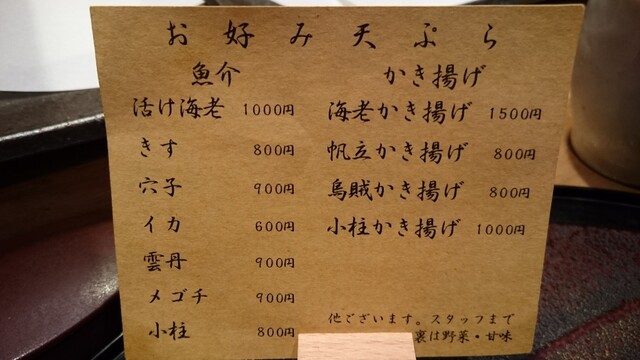 お好み天ぷら
魚介
活け海老 1000円
きす 800円
穴子 900円
イカ 600円
雲丹 900円
メゴチ 900円
小柱 800円
かき揚げ
海老かき揚げ 1500円
帆立かき揚げ 800円
烏賊かき揚げ 800円
小柱かき揚げ 1000円
他ございます。スタッフまで
裏は野菜・甘味